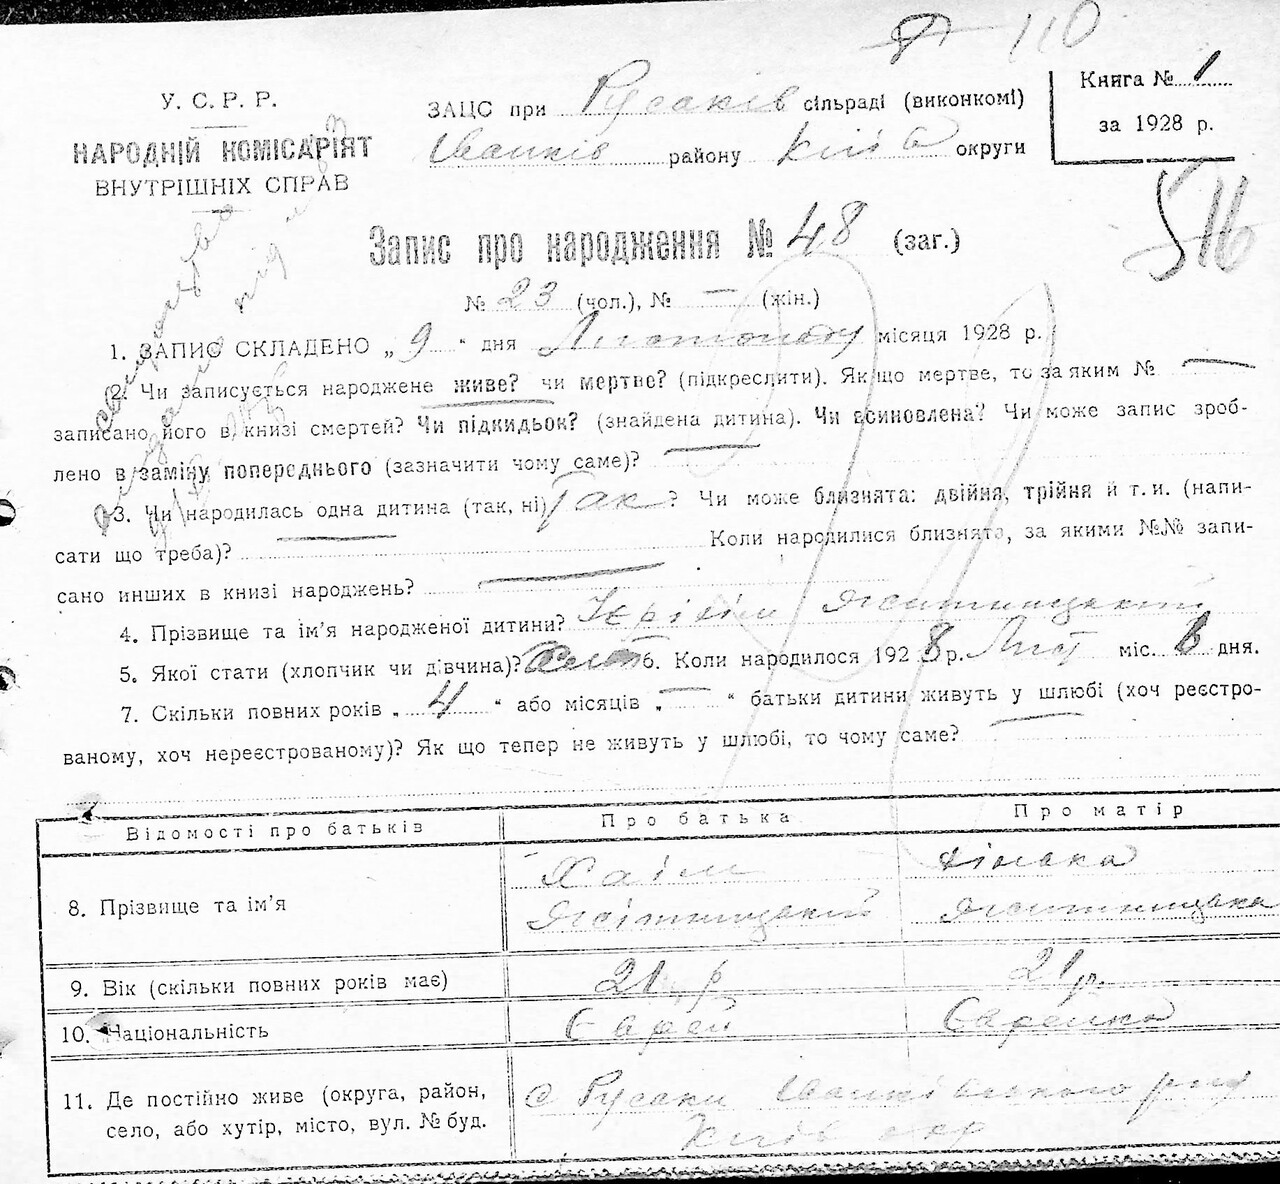 110
У. С. Р. Р.
НАРОДНІЙ КОМІСАРІЯТ
ВНУТРІШНІХ СПРАВ
ЗАЦС при Русаків сільраді (виконкомі)
Іванків району Київ округи
Книга № 1
за 1928 р.
516
Запис про народження № 48 (заг.)
№ 23 (чол.), № — (жін.)
1. ЗАПИС СКЛАДЕНО „ 9 “ дня Листопаду місяця 1928 р.
2. Чи записується народжене живе? чи мертве? (підкреслити). Як що мертве, то за яким № —
записано його в книзі смертей? Чи підкидьок? (знайдена дитина). Чи всиновлена? Чи може запис зроб-
лено в заміну попереднього (зазначити чому саме)? —
3. Чи народилась одна дитина (так, ні) Так ? Чи може близнята: двійня, трійня й т. и. (напи-
сати що треба)? — Коли народилися близнята, за якими №№ запи-
сано инших в книзі народжень? —
4. Прізвище та ім’я народженої дитини?
5. Якої стати (хлопчик чи дівчина)? 6. Коли народилося 1928 р. Лист міс. 6 дня.
7. Скільки повних років „ 4 “ або місяців „ — “ батьки дитини живуть у шлюбі (хоч реєстро-
ваному, хоч нереєстрованому)? Як що тепер не живуть у шлюбі, то чому саме? —
Відомості про батьків Про батька Про матір
8. Прізвище та ім’я Хаім Житницький Житницька
9. Вік (скільки повних років має) 21 р 21 р.
10. Національність Єврей Єврейка
11. Де постійно живе (округа, район, село, або хутір, місто, вул. № буд. с Русаки Іванківського р-ну
Київ окр